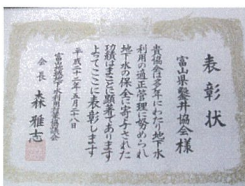 表彰状
富山県鑿井協会様
貴協会は多年にわたり地下水
利用の適正管理に努められ
地下水の保全に寄与された
功績はまことに顕著であります
よってここに表彰します
平成二十二年五月二十八日
富山地域地下水利用対策協議会
会長 森 雅志